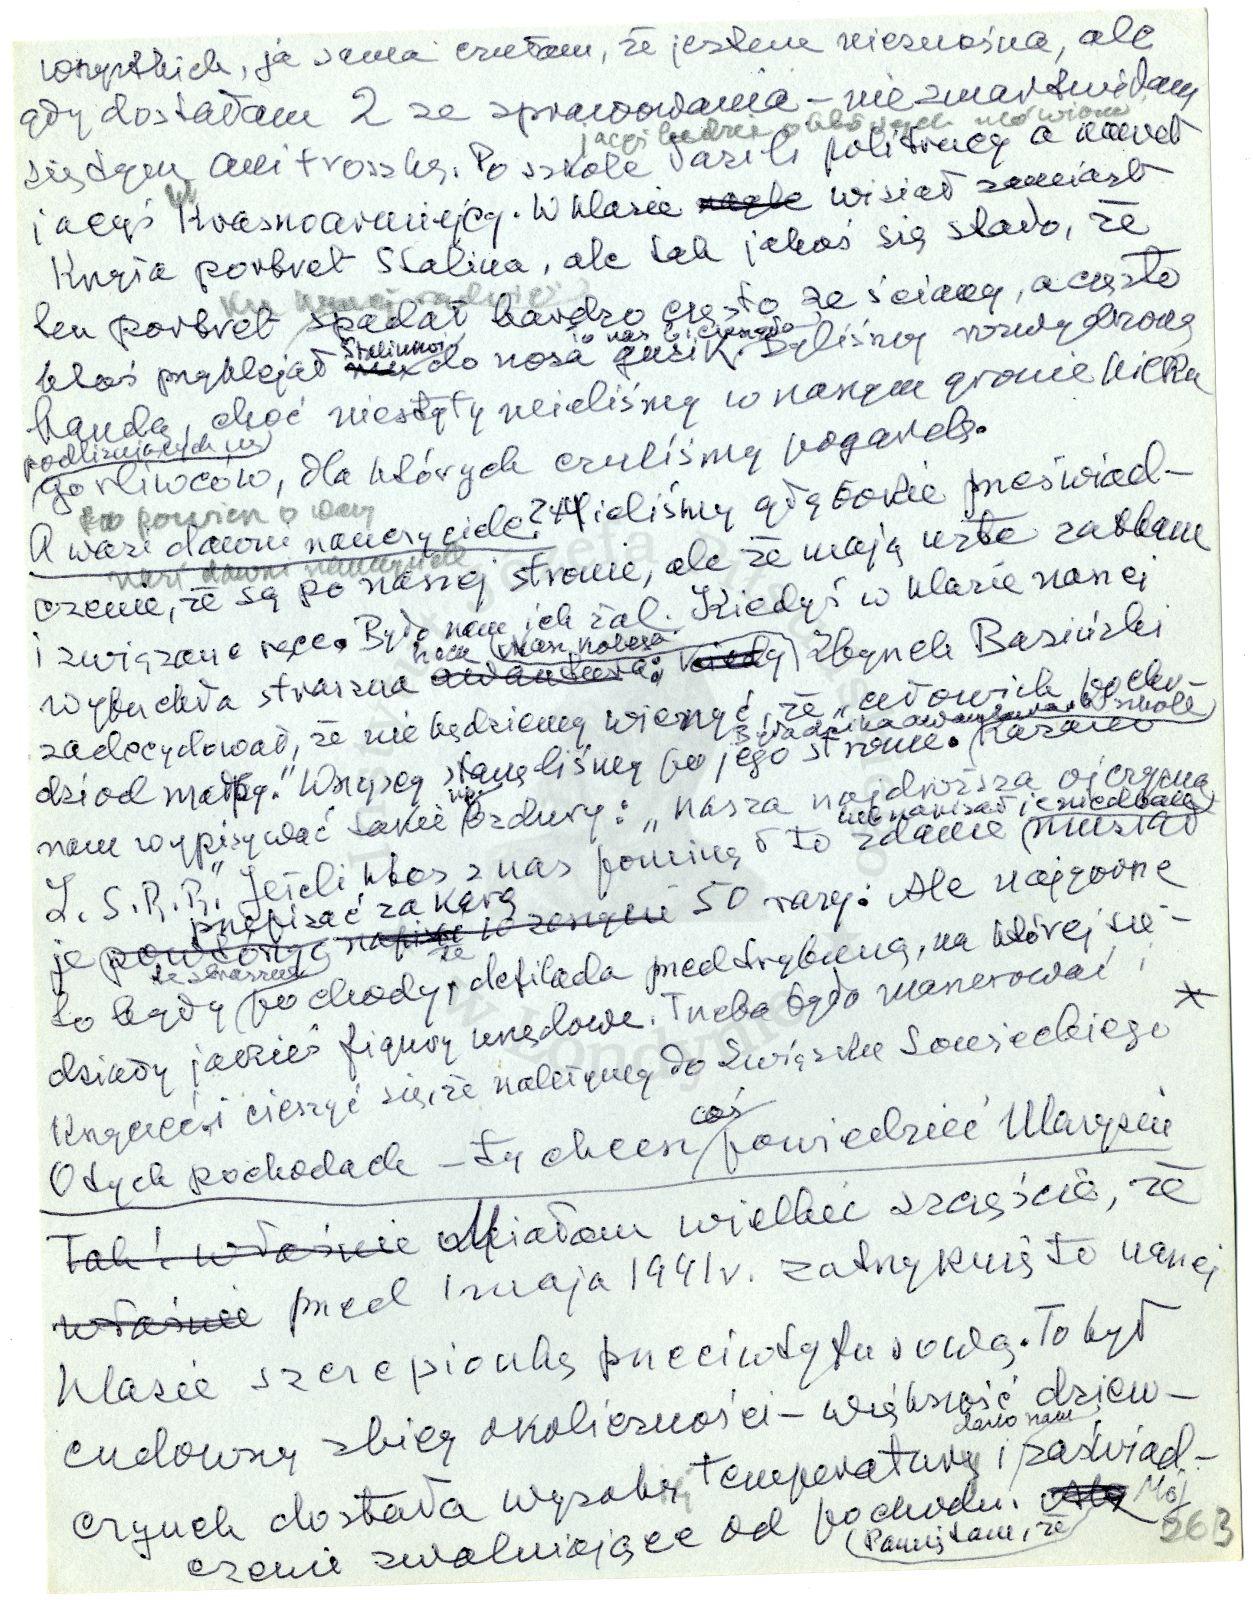 wszystkich, ja sama czułam, że jestem nieznośna, ale
gdy dostałam 2 ze sprawowania – nie zmartwiłam
jacyś ludzie o których mówiono
się tym ani troszkę. Po szkole łazili politrucy a nawet
jacyś Krasnoarmiejcy. W klasie nagle wisiał zamiast
Krzyża portret Stalina, ale tak jakoś się stało, że
ten portret spadał bardzo często ze ściany, a często
ktoś przyklejał Stalinowi do nosa guzik. Byliśmy rozwydrzoną
bandą, choć niestety mieliśmy w naszym gronie kilku
podlizujących się
gorliwców, dla których czuliśmy pogardę.
co powiesz o
A wasi dawni nauczyciele? Mieliśmy głębokie przeświad-
wasi dawni nauczyciele
czenie, że są po naszej stronie, ale że mają usta zatkane
i związane ręce. Było nam ich żal. Kiedyś w klasie naszej
heca nasz kolega
wybuchła straszna awantura: kiedy Zbynek Basiński
zadecydował, że nie będziemy wierzyć, że „człowiek pocho-
Była cała awantura w szkole
dził od małpy." Wszyscy stanęliśmy po jego stronie. Kazano
nam wypisywać takie bzdury: „nasza najdroższa ojczyzna
nie napisał i
Z.S.R.R." Jeżeli ktoś z nas pominął to zdanie musiał
przepisać za karę
je powtórzyć 50 razy. Ale najgorsze
te straszne
to były pochody, defilada przed trybuną, na której sie-
działy jakieś figury urzędowe. Trzeba było maszerować i
krzyczeć i cieszyć się, że należymy do Związku Sowieckiego
O tych pochodach – ty chcesz coś powiedzieć Marysiu
Tak! właśnie Miałam wielkie szczęście, że
właśnie przed 1 maja 1941 r. zastrzyknięto naszej
klasie szczepionkę przeciwtyfusową. To był
cudowny zbieg okoliczności – większość dziew-
dano nam
czynek dostała wysokiej temperatury i zaświad-
czenie zwalniające od pochodu. Ale Mój
Pamiętam, że
26B